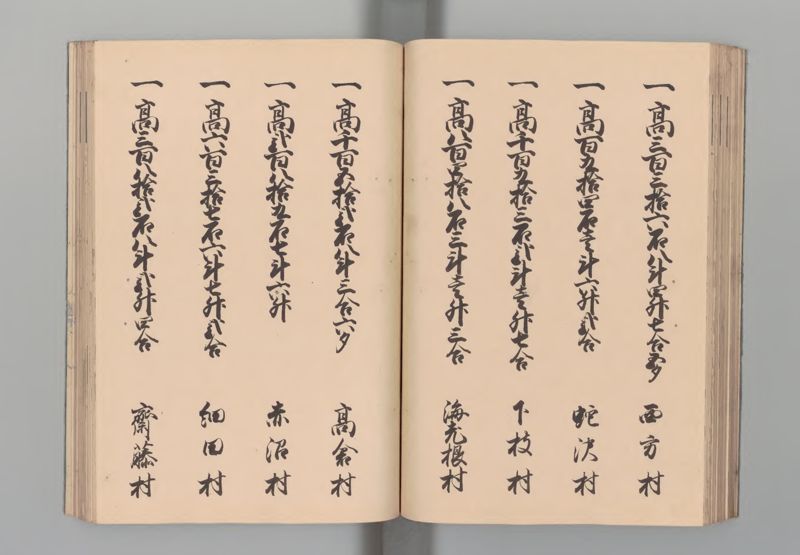 一高三百三拾六石八斗四升七合五夕 西方村
一高百九拾四石壱斗六升弐合 蛇沢村
一高千百九拾三石弐斗壱升七合 下枝村
一高八百四拾八石三斗壱升三合 海老根村
一高千百五拾弐石八斗三合六夕 高倉村
一高弐百八拾五石七斗六升 赤沼村
一高六百三拾七石六斗七升弐合 細田村
一高三百八拾弐石八斗弐升四合 齋藤村